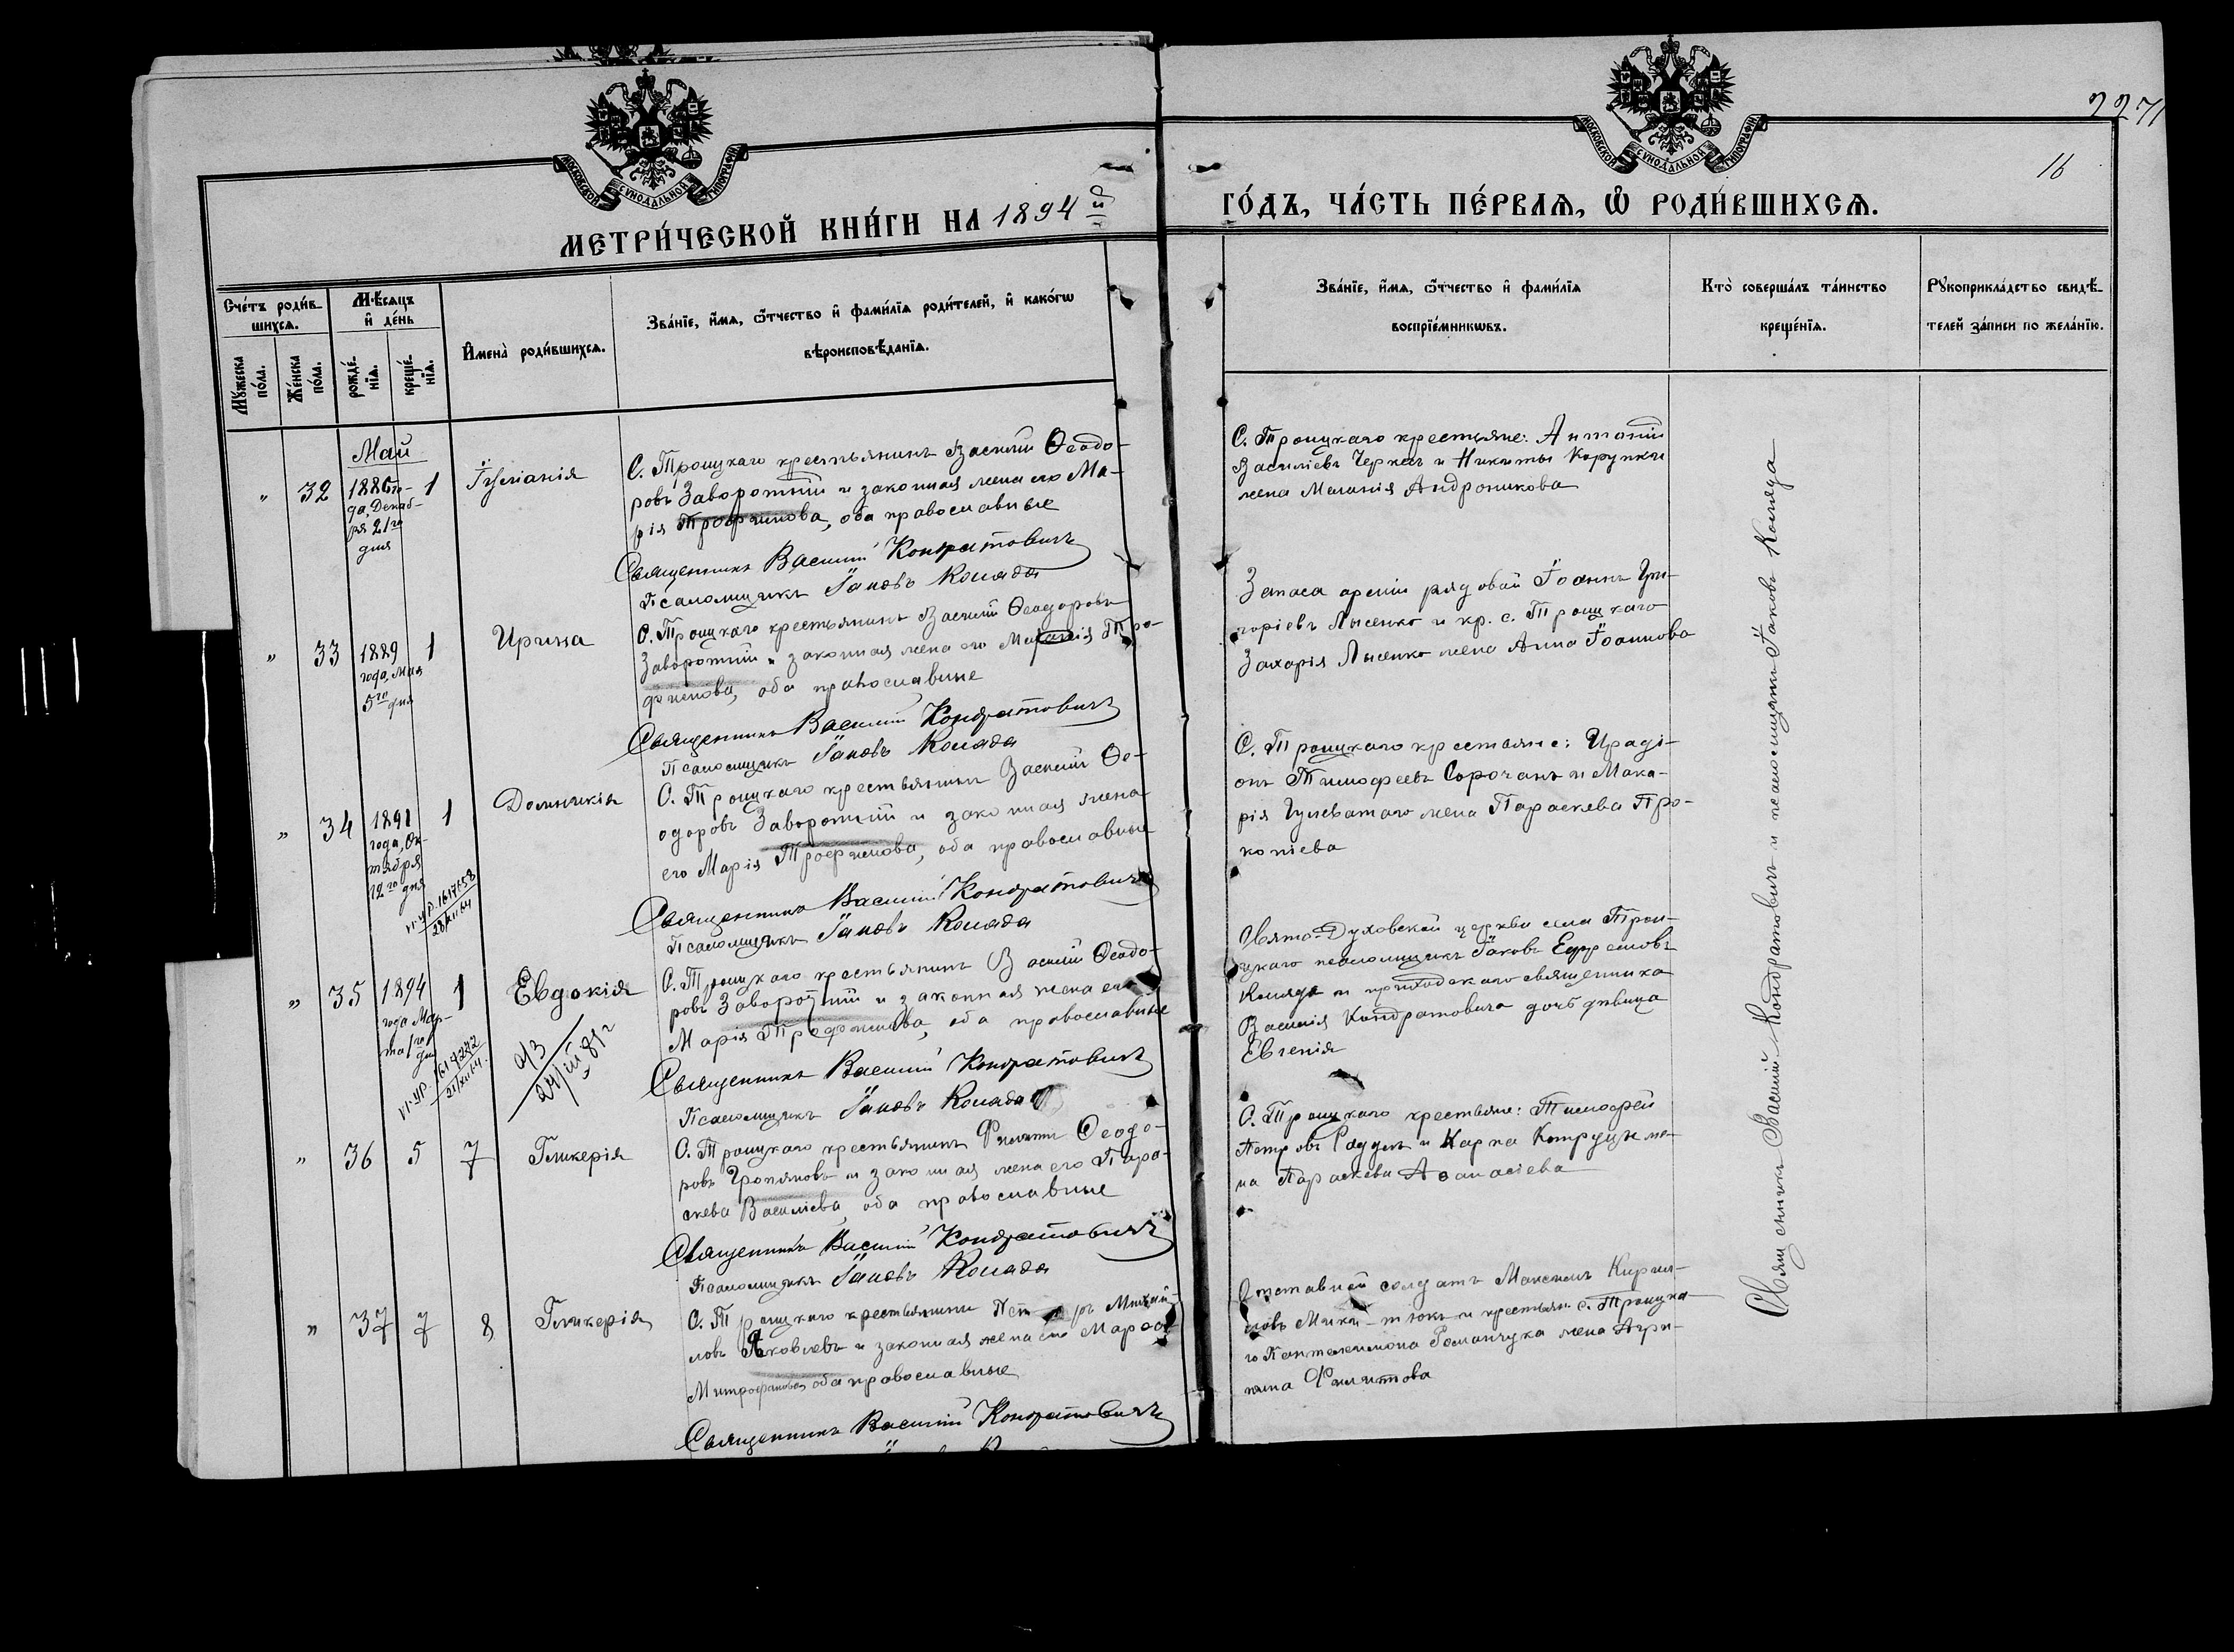 2271
16
МОСКОВСКОЙ СѴНОДАЛЬНОЙ ТИПОГРАФІИ
МОСКОВСКОЙ СѴНОДАЛЬНОЙ ТИПОГРАФІИ
МЕТРИ́ЧЕСКОЙ КНИ́ГИ НА 1894 й
ГО́ДЪ, ЧА́СТЬ ПЕ́РВАѦ, Ѽ РОДИ́ВШИХСѦ.
Сче́тъ роди́в-
шихсѧ.
Мꙋ́жеска по́ла.
Же́нска по́ла.
Мѣ́сѧцъ
и҆ де́нь
рожде́-
нїѧ.
креще́-
нїѧ.
И҆мена̀ роди́вшихсѧ.
Зва́нїе, и҆́мѧ, ѻ҆́тчество и҆ фами́лїѧ роди́телей, и҆ како́гѡ
вѣроисповѣ́данїѧ.
Зва́нїе, и҆́мѧ, ѻ҆́тчество и҆ фами́лїѧ
воспрїе́мникѡвъ.
Кто̀ соверша́лъ та́инство
креще́нїѧ.
Рꙋкоприкла́дство свидѣ́-
телей за́писи по жела́нїю.
Май
" 32 1886 го-
да, Декаб-
ря 21го
дня
1
Іуліанія
С. Троицкаго крестьянинъ Василій Ѳеодо-
ровъ Заворотній и законная жена его Ма-
рія Трофимова, оба православные
Священникъ Василій Кондратовичъ
Псаломщикъ Іаковъ Коляда
С. Троицкаго крестьяне: Антоній
Василіевъ Черкез и Никиты Корупки
жена Меланія Андроникова
" 33 1889
года, Мая
5го дня
1
Ирина
С. Троицкаго крестьянинъ Василій Ѳеодоровъ
Заворотній и законная жена его Марія Тро-
фимова, оба православные
Священникъ Василій Кондратовичъ
Псаломщикъ Іаковъ Коляда
Запаса арміи рядовой Іоаннъ Гри-
горіевъ Лысенко и кр. с. Троицкаго
Захарія Лысенко жена Анна Іоаннова
" 34 1891
года, Ок-
тября
12го дня
1
Домникія
VI-УР. 1617658
28/XI 64
С. Троицкаго крестьянинъ Василій Ѳе-
одоровъ Заворотній и законная жена
его Марія Трофимова, оба православные
Священникъ Василій Кондратовичъ
Псаломщикъ Іаковъ Коляда
С. Троицкаго крестьяне: Иради-
онъ Тимофеевъ Сорочанъ и Мака-
рія Гулеватаго жена Параскева Про-
копіева
" 35 1894
года Мар-
та 1го
дня
1
Евдокія
С. Троицкаго крестьянинъ Василій Ѳеодо-
ровъ Заворотній и законная жена его
Марія Трофимова, оба православные
Священникъ Василій Кондратовичъ
Псаломщикъ Іаковъ Коляда
Свято-Духовской церкви села Трои-
цкаго псаломщикъ Іаковъ Ефремовъ
Коляда и приходскаго священника
Василія Кондратовича дочь дѣвица
Евгенія
" 36 5 7
Гликерія
С. Троицкаго крестьянинъ Филиппъ Ѳеодо-
ровъ и законная жена его Пара-
скева Василіева, оба православные
Священникъ Василій Кондратовичъ
Псаломщикъ Іаковъ Коляда
С. Троицкаго крестьяне: Тимофей
Петровъ и Карпа же-
на Параскева Аѳанасіева
" 37 7 8
Гликерія
С. Троицкаго крестьянинъ Петръ Михаи-
ловъ Яковлевъ и законная жена его Марѳа
Митрофанова, оба православные
Священникъ Василій Кондратовичъ
Отставной солдатъ Максимъ Кирил-
ловъ и крестьян. с. Троицка-
го Пантелеимона Романчука жена Агри-
пина Филиппова
Священникъ Василій Кондратовичъ и псаломщикъ Іаковъ Коляда